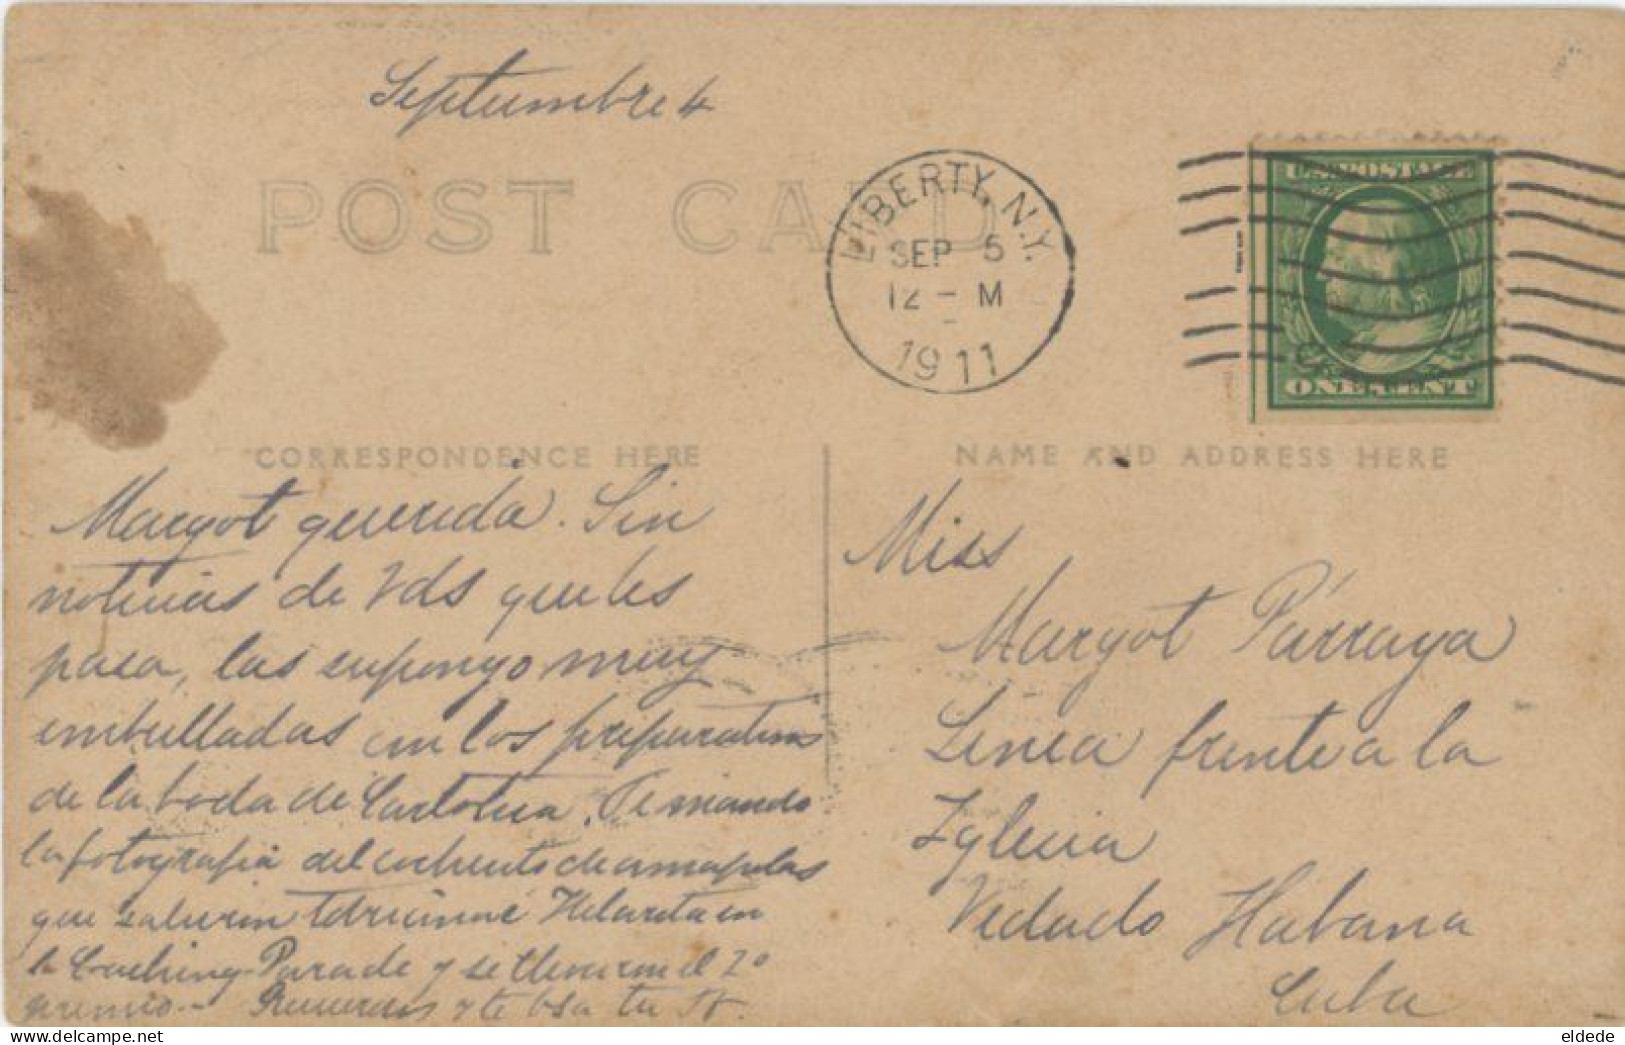 Septiembre 4
POST CARD
LIBERTY, N.Y.
SEP 5
12 - M
1911
U.S. POSTAGE
ONE CENT
CORRESPONDENCE HERE
NAME AND ADDRESS HERE
Margot querida. Sin
noticias de Vds que les
pasa, las supongo muy
embulladas con los preparativos
de la boda de Te mando
la fotografia del cochecito de amapolas
que salieron en
la Coaching Parade y se llevaron el 2º
premio.- Recuerdos y te besa tu
Miss
Margot Párraga
Linea frente a la
Iglesia
Vedado Habana
Cuba
eldede